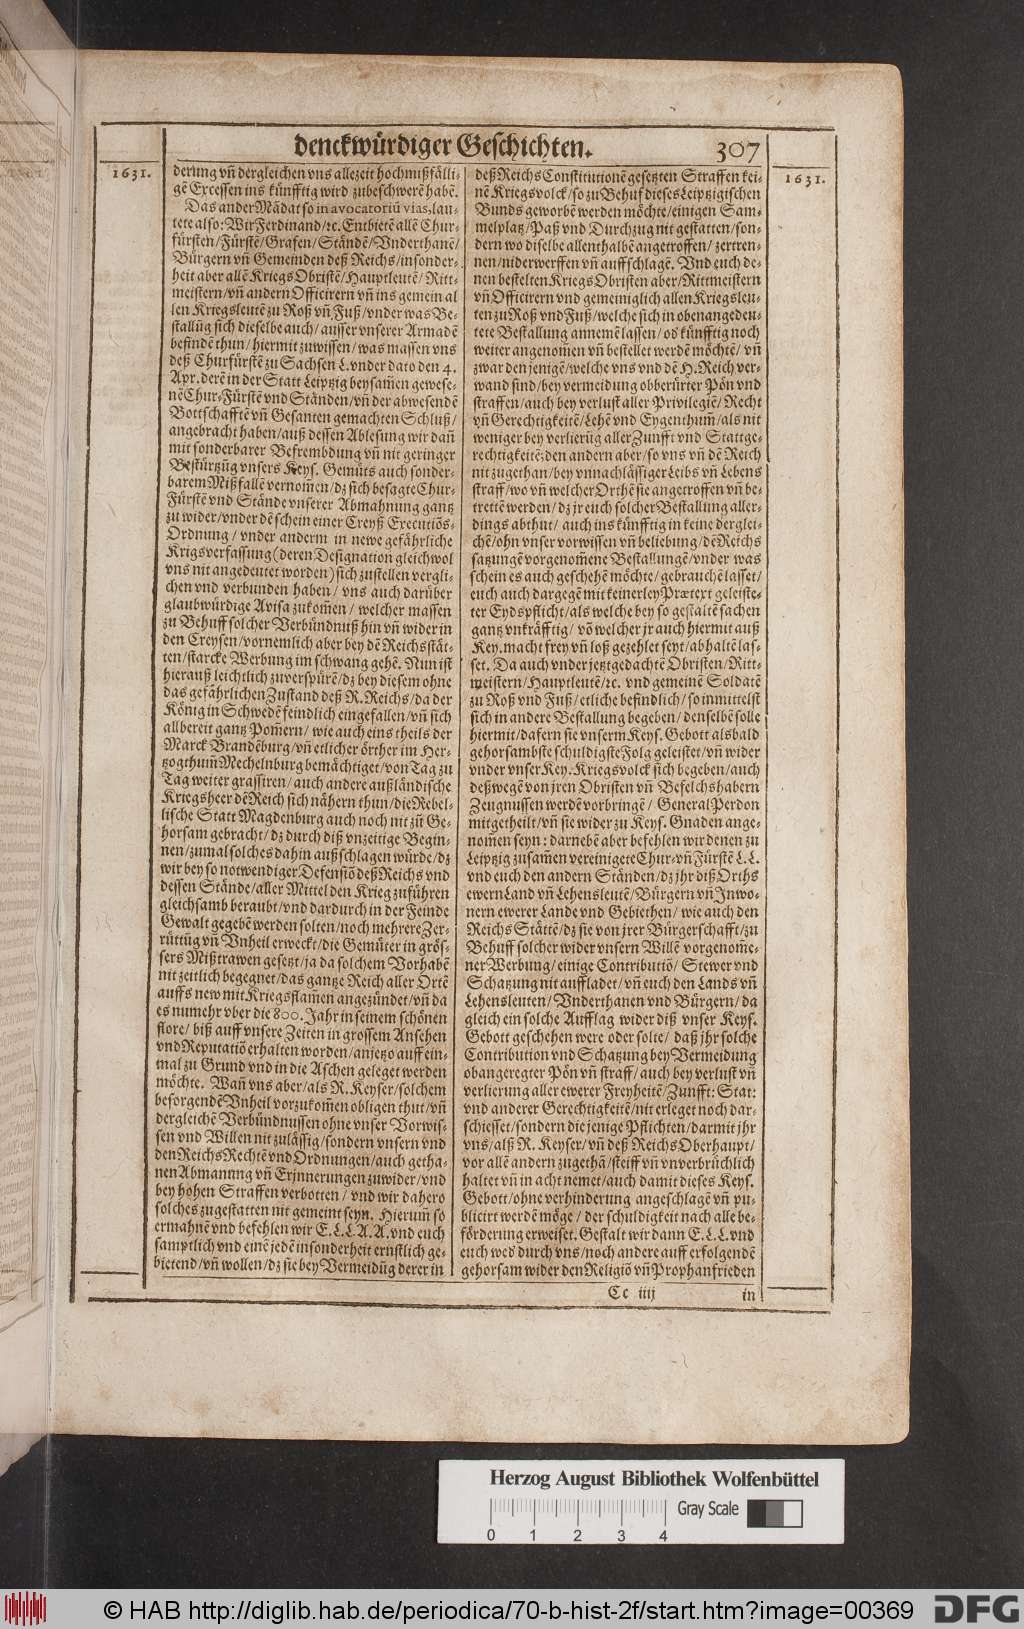 denckwürdiger Geschichten. 307
1631.
derung vñ dergleichen vns allezeit hochmißfälli-
gē Excessen ins künfftig wird zubeschwerē habē.
Das ander Mādat so in avocatoriū vias, lau-
tete also: Wir Ferdinand/ꝛc. Entbietē allē Chur-
fürsten/Fürstē/Grafen/Ständē/Vnderthanē/
Bürgern vñ Gemeinden deß Reichs/insonder-
heit aber allē Kriegs Obristē/Hauptleutē/Ritt-
meistern/vñ andern Officirern vñ ins gemein al
len Kriegsleutē zu Roß vñ Fuß/vnder was Be-
stallūg sich dieselbe auch/ausser vnserer Armadē
befindē thun/hiermit zuwissen/was massen vns
deß Churfürstē zu Sachsen L. vnder dato den 4.
Apr. derē in der Statt Leiptzig beysam̃en gewese-
nē Chur-Fürstē vnd Ständen/vñ der abwesendē
Bottschafftē vñ Gesanten gemachten Schluß/
angebracht haben/auß dessen Ablesung wir dañ
mit sonderbarer Befrembdung vñ nit geringer
Bestürtzūg vnsers Keys. Gemüts auch sonder-
barem Mißfallē vernom̃en/dz sich besagte Chur-
Fürstē vnd Stände vnserer Abmahnung gantz
zu wider/vnder dē schein einer Creyß Executiōs-
Ordnung/vnder anderm in newe gefährliche
Krigsverfassung (deren Designation gleichwol
vns nit angedeutet worden) sich zustellen vergli-
chen vnd verbunden haben/vns auch darüber
glaubwürdige Avisa zukom̃en/welcher massen
zu Behuff solcher Verbündnuß hin vñ wider in
den Creysen/vornemlich aber bey dē Reichsstät-
ten/starcke Werbung im schwang gehē. Nun ist
hierauß leichtlich zuverspürē/dz bey diesem ohne
das gefährlichen Zustand deß R. Reichs/da der
König in Schwedē feindlich eingefallen/vñ sich
allbereit gantz Pom̃ern/wie auch eins theils der
Marck Brandēburg/vñ etlicher örther im Her-
tzogthum̃ Mechelnburg bemächtiget/von Tag zu
Tag weiter grassiren/auch andere außländische
Kriegsheer dē Reich sich nähern thun/die Rebel-
lische Statt Magdenburg auch noch nit zū Ge-
horsam gebracht/dz durch diß vnzeitige Begin-
nen/zumal solches dahin außschlagen würde/dz
wir bey so notwendiger Defensiō deß Reichs vnd
dessen Stände/aller Mittel den Krieg zuführen
gleichsamb beraubt/vnd dardurch in der Feinde
Gewalt gegebē werden solten/noch mehrere Zer-
rüttūg vñ Vnheil erweckt/die Gemüter in grös-
sers Mißtrawen gesetzt/ja da solchem Vorhabē
nit zeitlich begegnet/das gantze Reich aller Ortē
auffs new mit Kriegsflam̃en angezündet/vñ da
es numehr vber die 800. Jahr in seinem schönen
flore/biß auff vnsere Zeiten in grossem Ansehen
vnd Reputatiō erhalten worden/anjetzo auff ein-
mal zu Grund vnd in die Aschen geleget werden
möchte. Wañ vns aber/als R. Keyser/solchem
besorgendē Vnheil vorzukom̃en obligen thut/vñ
dergleichē Verbündnussen ohne vnser Vorwis-
sen vnd Willen nit zulässig/sondern vnsern vnd
den Reichs Rechtē vnd Ordnungen/auch getha-
nen Abmanung vñ Erjnnerungen zuwider/vnd
bey hohen Straffen verbotten/vnd wir dahero
solches zugestatten nit gemeint seyn. Hierum̃ so
ermahnē vnd befehlen wir E. L. L. A. A. vnd euch
samptlich vnd einē jedē insonderheit ernstlich ge-
bietend/vñ wollen/dz sie bey Vermeidūg derer in
deß Reichs Constitutionē gesetzten Straffen kei-
nē Kriegsvolck/so zu Behuf dieses Leiptzigischen
Bunds geworbē werden möchte/einigen Sam-
melplatz/Paß vnd Durchzug nit gestatten/son-
dern wo diselbe allenthalbē angetroffen/zertren-
nen/niderwerffen vñ auffschlagē. Vnd euch de-
nen bestelten Kriegs Obristen aber/Rittmeistern
vñ Officirern vnd gemeiniglich allen Kriegsleu-
ten zu Roß vnd Fuß/welche sich in obenangedeu-
tete Bestallung annemē lassen/od künfftig noch
weiter angenom̃en vñ bestellet werdē möchtē/vñ
zwar den jenigē/welche vns vnd dē H. Reich ver-
wand sind/bey vermeidung obberürter Pön vnd
straffen/auch bey verlust aller Privilegiē/Recht
vñ Gerechtigkeitē/Lehē vnd Eygenthum̃/als nit
weniger bey verlierūg aller Zunfft vnd Stattge-
rechtigkeitē: den andern aber/so vns vñ dē Reich
nit zugethan/bey vnnachlässiger Leibs vñ Lebens
straff/wo vñ welcher Orthē sie angetroffen vñ be-
trettē werden/dz jr euch solcher Bestallung aller-
dings abthut/auch ins künfftig in keine derglei-
chē/ohn vnser vorwissen vñ beliebung/dē Reichs
satzungē vorgenom̃ene Bestallungē/vnder was
schein es auch geschehē möchte/gebrauchē lasset/
euch auch dargegē mit keinerley Prætext geleiste-
ter Eydspflicht/als welche bey so gestaltē sachen
gantz vnkräfftig/vō welcher jr auch hiermit auß
Key. macht frey vñ loß gezehlet seyt/abhaltē las-
set. Da auch vnder jetztgedachtē Obristen/Ritt-
meistern/Hauptleutē/ꝛc. vnd gemeinē Soldatē
zu Roß vnd Fuß/etliche befindlich/so inmittelst
sich in andere Bestallung begeben/denselbē solle
hiermit/dafern sie vnserm Keys. Gebott alsbald
gehorsambste schuldigste Folg geleistet/vñ wider
vnder vnser Key. Kriegsvolck sich begeben/auch
deßwegē von jren Obristen vñ Befelchshabern
Zeugnussen werdē vorbringē/General Perdon
mitgetheilt/vñ sie wider zu Keys. Gnaden ange-
nom̃en seyn: darnebē aber befehlen wir denen zu
Leiptzig zusam̃en vereinigete Chur-vñ Fürstē L. L.
vnd euch den andern Ständen/dz jhr diß Orths
ewern Land vñ Lehensleutē/Bürgern vñ Jnwo-
nern ewerer Lande vnd Gebiethen/wie auch den
Reichs Stättē/dz sie von jrer Bürgerschafft/zu
Behuff solcher wider vnsern Willē vorgenom̃e-
ner Werbung/einige Contributiō/Stewer vnd
Schatzung nit auffladet/vñ euch den Lands vñ
Lehensleuten/Vnderthanen vnd Bürgern/da
gleich ein solche Aufflag wider diß vnser Keys.
Gebott geschehen were oder solte/daß jhr solche
Contribution vnd Schatzung bey Vermeidung
obangeregter Pön vñ straff/auch bey verlust vñ
verlierung aller ewerer Freyheitē/Zunfft: Stat:
vnd anderer Gerechtigkeitē/nit erleget noch dar-
schiesset/sondern die jenige Pflichten/darmit jhr
vns/alß R. Keyser/vñ deß Reichs Oberhaupt/
vor allē andern zugethā/steiff vñ vnverbrüchlich
haltet vñ in acht nemet/auch damit dieses Keys.
Gebott/ohne verhinderung angeschlagē vñ pu-
blicirt werdē möge/der schuldigkeit nach alle be-
förderung erweiset. Gestalt wir dann E. L. L. vnd
euch wed' durch vns/noch andere auff erfolgendē
gehorsam wider den Religiō vñ Prophanfrieden
Cc iiij in
1631.
Herzog August Bibliothek Wolfenbüttel
Gray Scale
0 1 2 3 4
© HAB http://diglib.hab.de/periodica/70-b-hist-2f/start.htm?image=00369
DFG